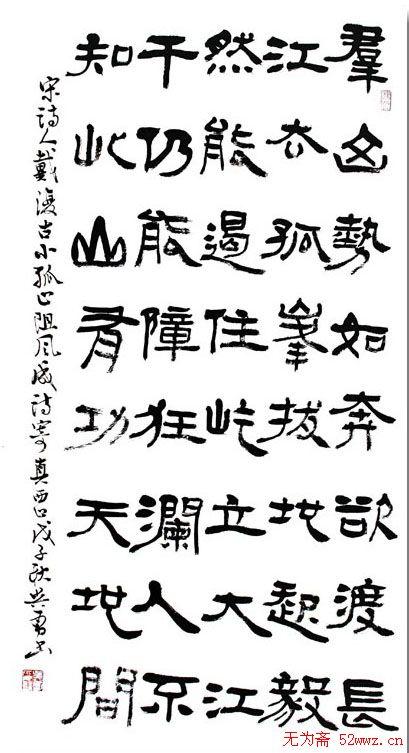 羣山勢如奔欲渡長
江去孤峯拔地起毅
然能遏住屹立大江
干仍能障狂瀾人不
知此山有功天地間
宋詩人戴復古小孤山阻風成詩寄真西山戊子秋勇書
无为斋 52wwz.cn